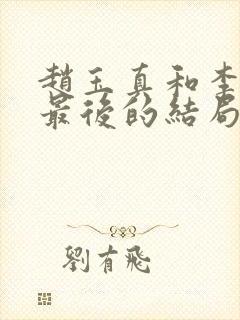 趙玉真和李
最後的結局
劉有飛